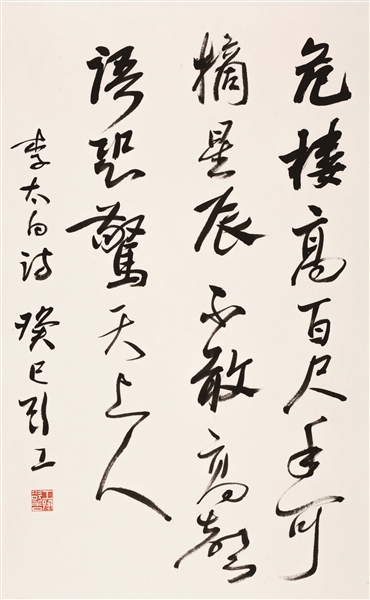 危楼高百尺手可
摘星辰不敢高声
语恐驚天上人
李太白诗 癸巳